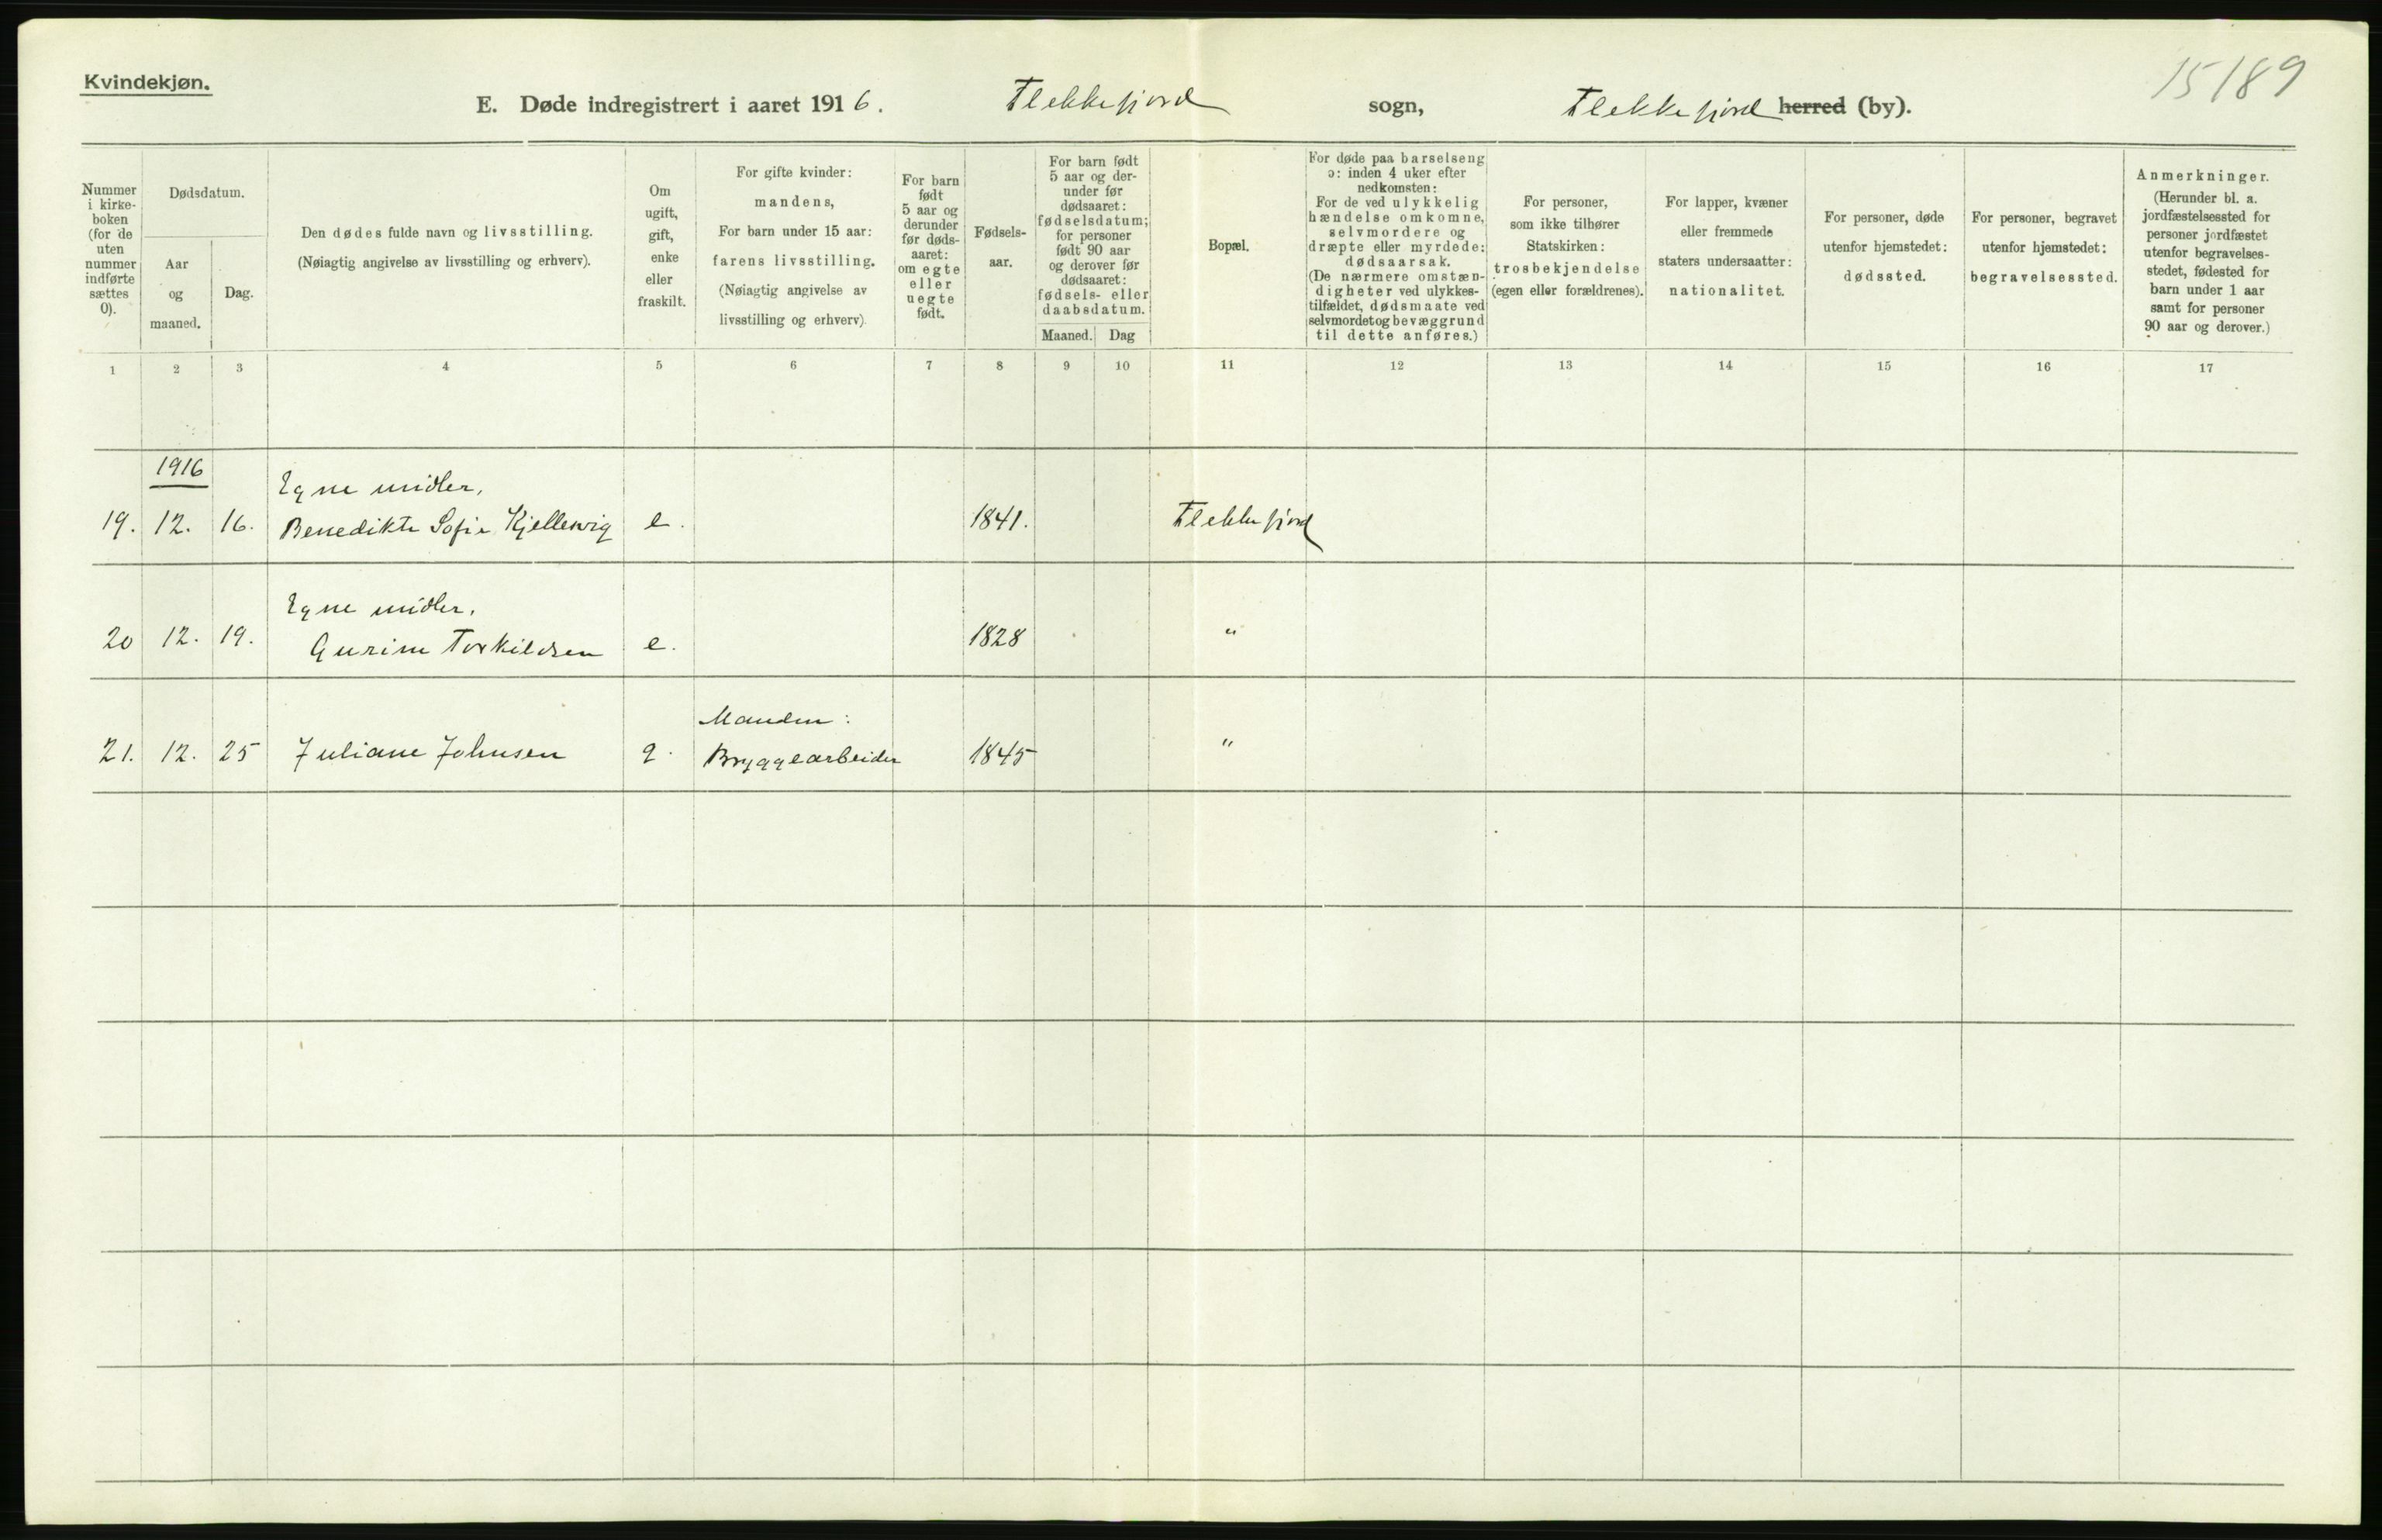 Kvindekjøn.
15189
E. Døde indregistrert i aaret 1916. Flekkefjord sogn, Flekkefjord herred (by).
Nummer
i kirke-
boken
(for de
uten
nummer
indførte
sættes
0).
Dødsdatum.
Aar
og
maaned.
Dag.
Den dødes fulde navn og livsstilling.
(Nøiagtig angivelse av livsstilling og erhverv).
Om
ugift,
gift,
enke
eller
fraskilt.
For gifte kvinder:
mandens,
For barn under 15 aar:
farens livsstilling.
(Nøiagtig angivelse av
livsstilling og erhverv).
For barn
født
5 aar og
derunder
før døds-
aaret:
om egte
eller
uegte
født.
Fødsels-
aar.
For barn født
5 aar og der-
under før
dødsaaret:
fødselsdatum;
for personer
født 90 aar
og derover før
dødsaaret:
fødsels- eller
daabsdatum.
Maaned. Dag
Bopæl.
For døde paa barselseng
ɔ: inden 4 uker efter
nedkomsten:
For de ved ulykkelig
hændelse omkomne,
selvmordere og
dræpte eller myrdede:
dødsaarsak.
(De nærmere omstæn-
digheter ved ulykkes-
tilfældet, dødsmaate ved
selvmordet og bevæggrund
til dette anføres.)
For personer,
som ikke tilhører
Statskirken:
trosbekjendelse
(egen eller forældrenes).
For lapper, kvæner
eller fremmede
staters undersaatter:
nationalitet.
For personer, døde
utenfor hjemstedet:
dødssted.
For personer, begravet
utenfor hjemstedet:
begravelsessted.
Anmerkninger.
(Herunder bl. a.
jordfæstelsessted for
personer jordfæstet
utenfor begravelses-
stedet, fødested for
barn under 1 aar
samt for personer
90 aar og derover.)
1 2 3 4 5 6 7 8 9 10 11 12 13 14 15 16 17
1916
Egne midler,
19. 12. 16. Benedikte Sofie Kjellewig e. 1841. Flekkefjord
Egne midler.
20 12. 19. Gurine Torkildsen e. 1828 "
Manden:
21. 12. 25 Juliane Johnsen g. Bryggearbeider 1845 "